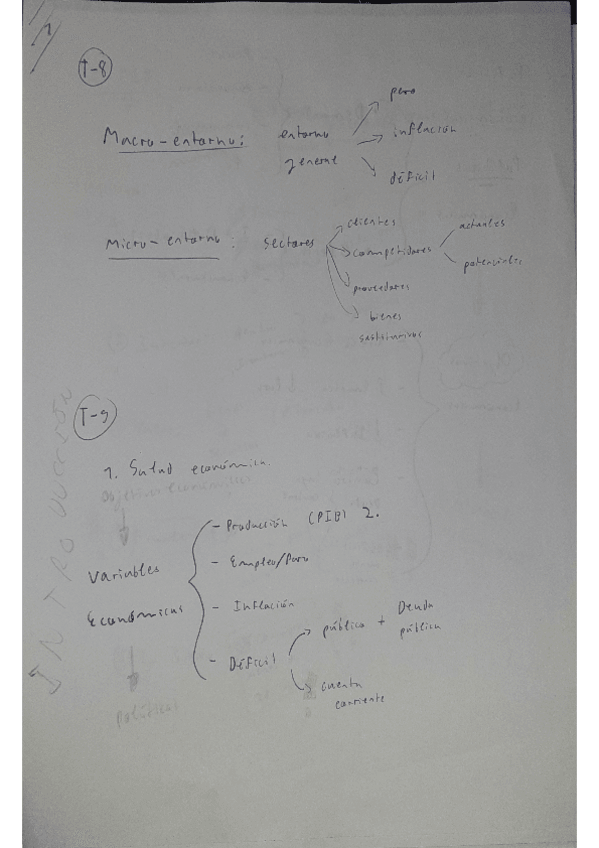 T-8
Macro-entorno: entorno general
paro
inflación
déficil
Micro-entorno: sectores
clientes
competidores
actuales
potenciales
proveedores
bienes
sustitutivos
T-9
INTRODUCCIÓN
1. Salud económica.
Objetivos económicos
Variables
Económicas
- Producción (PIB) 2.
- Empleo/Paro
- Inflación
- Déficil
público + Deuda
pública
cuenta
corriente
Políticas